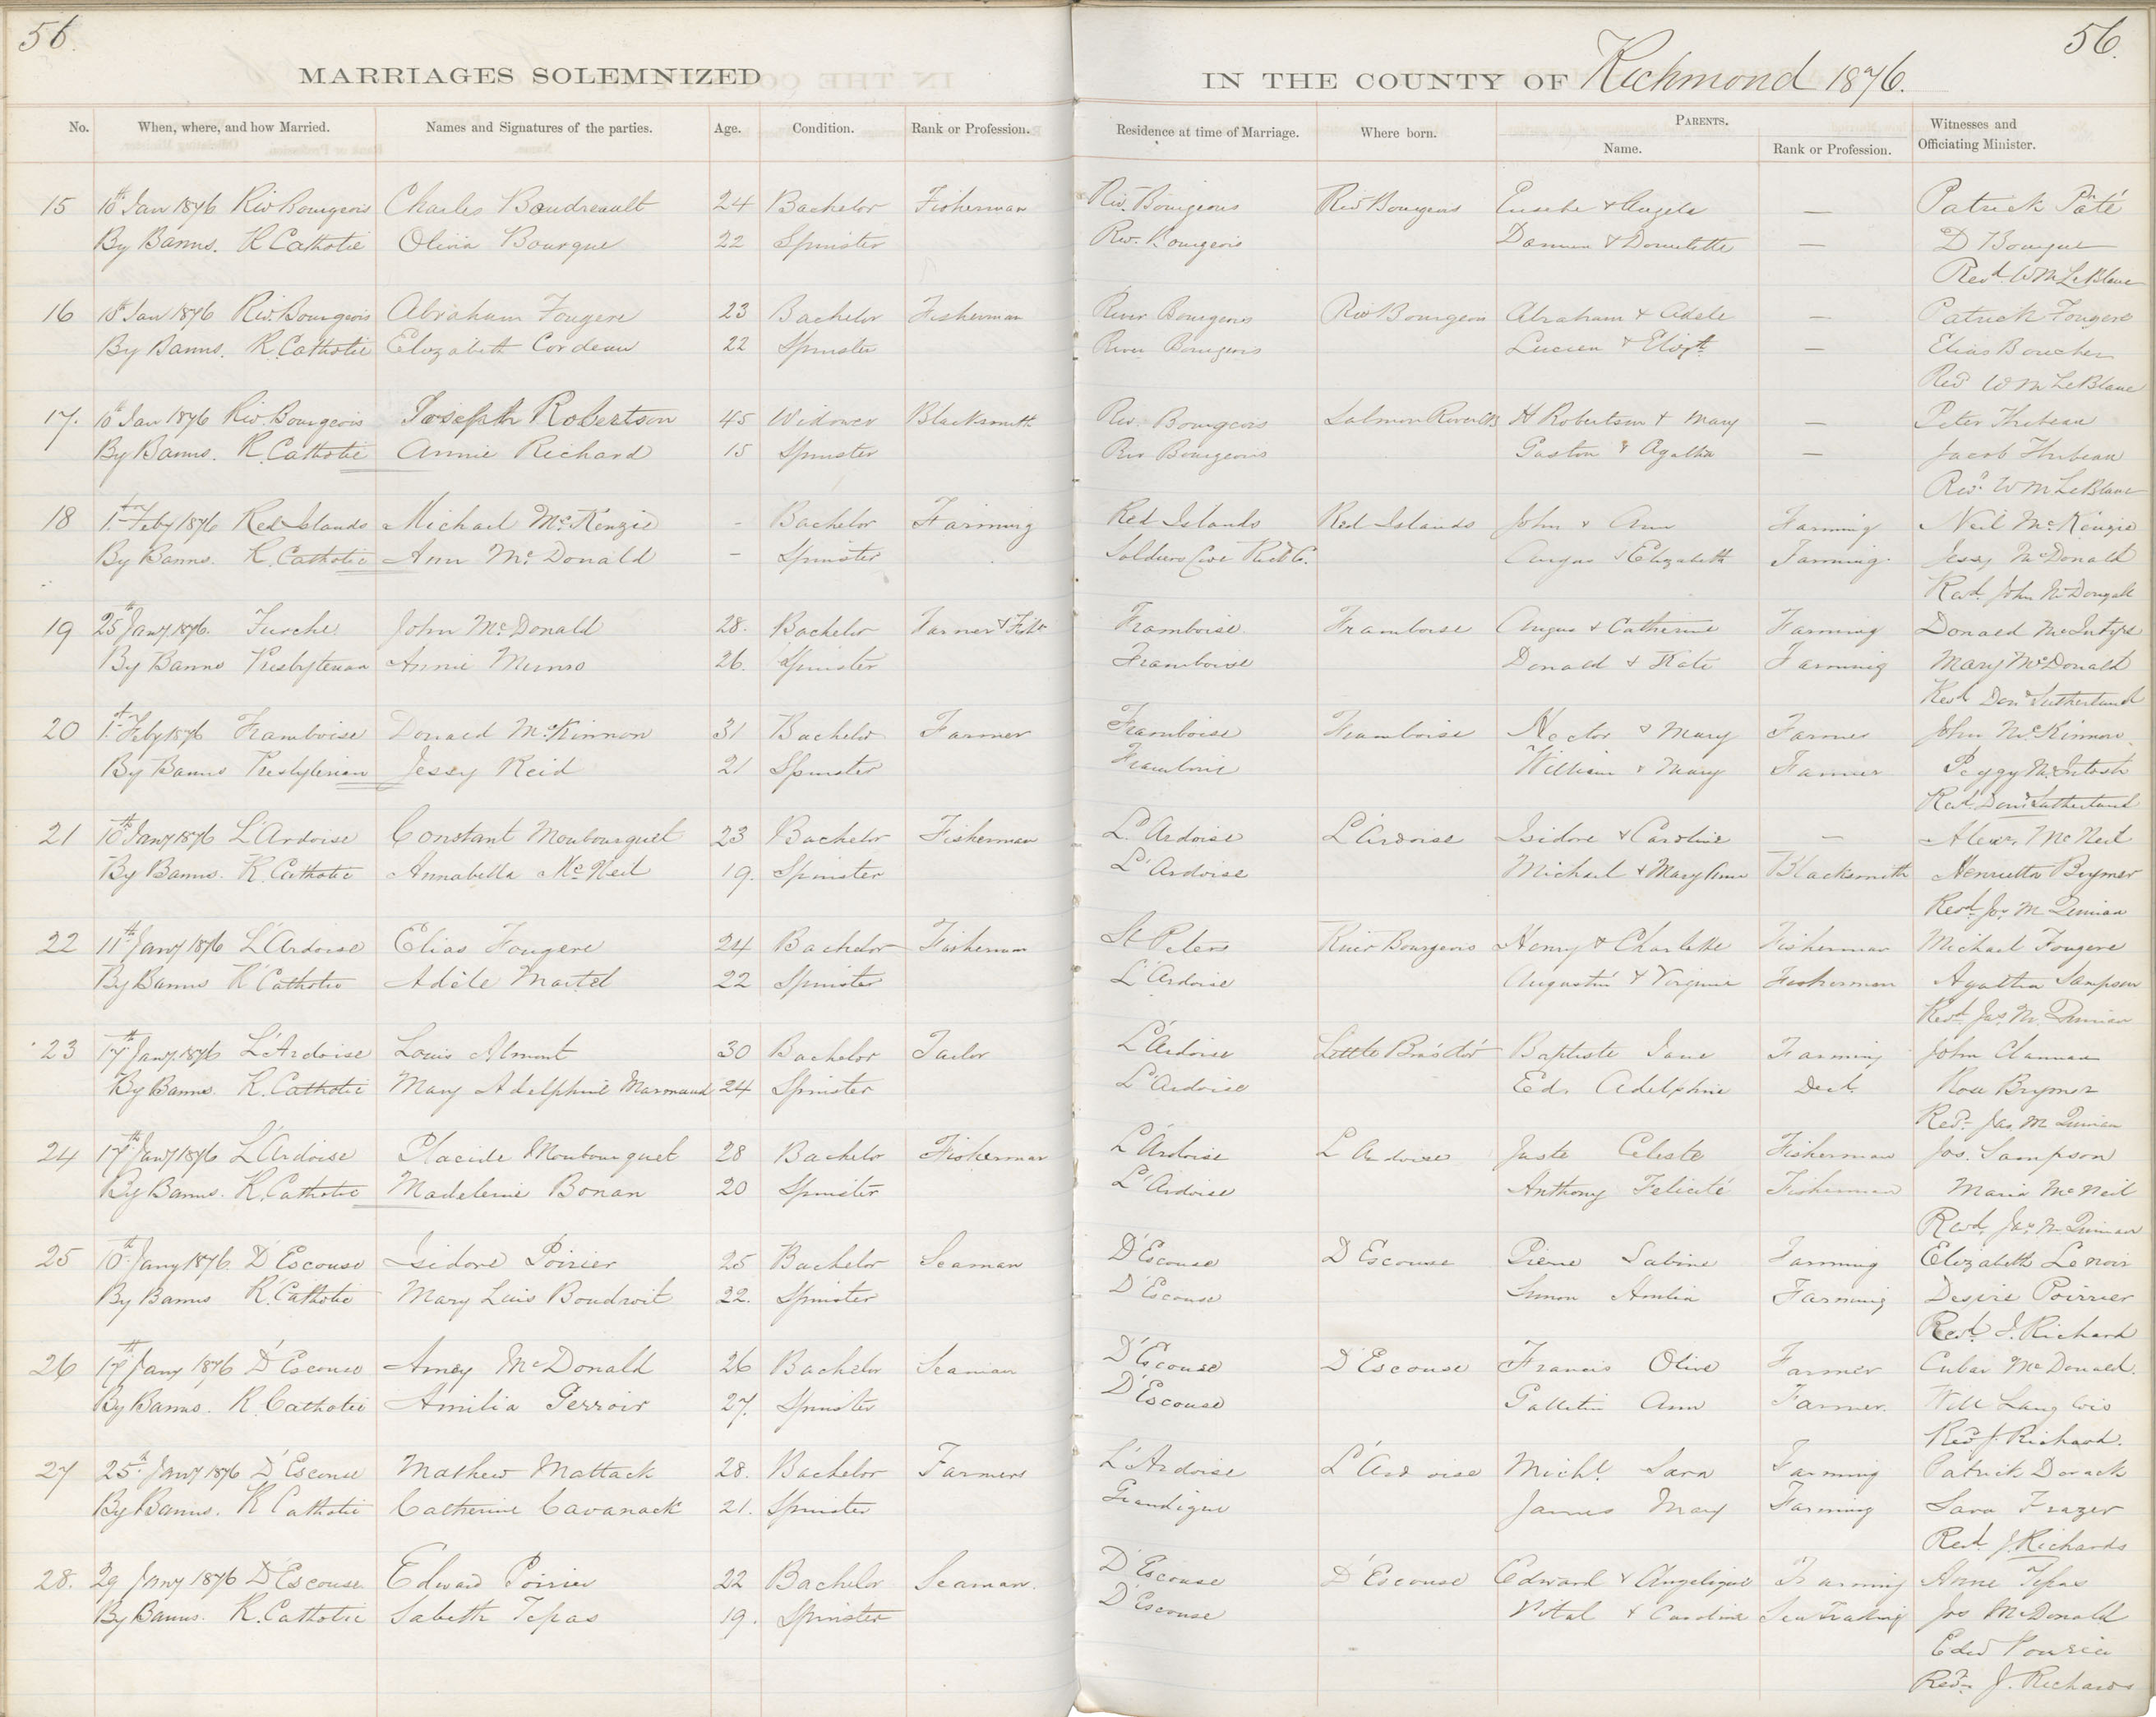 56. 56.
MARRIAGES SOLEMNIZED IN THE COUNTY OF Richmond 1876.
No. When, where, and how Married. Names and Signatures of the parties. Age. Condition. Rank or Profession. Residence at time of Marriage. Where born. PARENTS. Witnesses and
Name. Rank or Profession. Officiating Minister.
15 10th Jan 1876 Riv Bourgeois Charles Boudreault 24 Bachelor Fisherman Riv. Bourgeois Riv Bourgeois Eusebe & Angele — Patrick Paté
By Banns. R Catholic Olivia Bourque 22 Spinster Riv. Bourgeois — D Bourque
Revd. Wm LeBlanc
16 10th Jan 1876 Riv. Bourgeois Abraham Fougere 23 Bachelor Fisherman River Bourgeois Riv Bourgeois Abraham & Adele — Patrick Fougere
By Banns. R. Catholic Elizabeth Cordeau 22 Spinster River Bourgeois Lucien & Elizth — Elias Boucher
Revd Wm LeBlanc
17. 10th Jan 1876 Riv. Bourgeois Joseph Robertson 45 Widower Blacksmith Riv Bourgeois Salmon River H Robertson & Mary — Peter Thibeau
By Banns. R. Catholic Annie Richard 15 Spinster Riv Bourgeois Gaston & Agatha — Jacob Thibeau
Revd. Wm LeBlanc
18 1st Feby 1876 Red Islands Michael McKenzie - Bachelor Farming Red Islands Red Islands John & Ann Farming Neil McKenzie
By Banns. R. Catholic Ann McDonald - Spinster Soldiers Cove Richd C. Angus & Elizabeth Farming Jessy McDonald
Revd. John McDougall
19 25th Jany 1876. Furche John McDonald 28. Bachelor Farmer & Fishr Framboise Framboise Angus & Catherine Farming Donald McIntyre
By Banns Presbyterian Annie Munro 26. Spinster Framboise Donald & Kate Farming Mary McDonald
Revd Dond Sutherland
20 1st Feby 1876 Framboise Donald McKinnon 31 Bachelor Farmer Framboise Framboise Hector & Mary Farmer John McKinnon
By Banns Presbyterian Jessy Reid 21 Spinster Framboise William & Mary Farmer Peggy McIntosh
Revd. Dond Sutherland
21 10th Jany 1876 L'Ardoise Constant Monbourquet 23 Bachelor Fisherman L'Ardoise L'Ardoise Isidore & Caroline — Alexr. McNeil
By Banns. R. Catholic Annabella McNeil 19. Spinster L'Ardoise Michael & Mary Ann Blacksmith Henrietta Brymer
Revd. Jas M Quinan
22 11th Jany 1876 L'Ardoise Elias Fougere 24 Bachelor Fisherman St Peters River Bourgeois Henry & Charlotte Fisherman Michael Fougere
By Banns R Catholic Adèle Martel 22 Spinster L'Ardoise Augustin & Virginie Fisherman Agatha Sampson
Revd. Jas. M. Quinan
23 17th Jany. 1876 L'Ardoise Louis Almont 30 Bachelor Tailor L'Ardoise Little Bras d'or Baptiste Jane Farming John Clannan
By Banns. R. Catholic Mary Adelphine Marmaud 24 Spinster L'Ardoise Ed. Adelphine Decd. Rose Brymer
Revd. Jas. M Quinan
24 17th Jany 1876 L'Ardoise Placide Monbourquet 28 Bachelor Fisherman L'Ardoise L'Ardoise Juste Celeste Fisherman Jos. Sampson
By Banns. R. Catholic Madeleine Bonan 20 Spinster L'Ardoise Anthony Felicité Fisherman Maria McNeil
Revd. Jas. M Quinan
25 10th Jany 1876. D'Escouse Isidore Poirier 25 Bachelor Seaman D'Escouse D'Escouse Pierre Sabine Farming Elizabeth Lenoir
By Banns R. Catholic Mary Luis Boudroit 22. Spinster D'Escouse Simon Amelia Farming Desire Poirrier
Revd. J. Richard
26 17th Jany 1876 D'Escouse Amey McDonald 26 Bachelor Seaman D'Escouse D'Escouse Francis Olive Farmer McDonald.
By Banns. R. Catholic Amilia Perroir 27. Spinster D'Escouse Ann Farmer. Will Langlois
Revd. J. Richard.
27 25th Jany 1876 D'Escouse Mathew Mattack 28. Bachelor Farmers L'Ardoise L'Ardoise Michl. Sara Farming Patrick Dorack
By Banns. R Catholic Catherine Cavanack 21. Spinster Grandique James Mary Farming Sara Frazer
Revd. J. Richards
28. 29 Jany 1876 D'Escouse Edward Poirier 22 Bachelor Seaman. D'Escouse D'Escouse Edward & Angelique Farming Anne Tepas
By Banns. R. Catholic Sabeth Tepas 19. Spinster D'Escouse Vital & Caroline Sea Trading Jos McDonald
Edwd
Revd. J. Richards